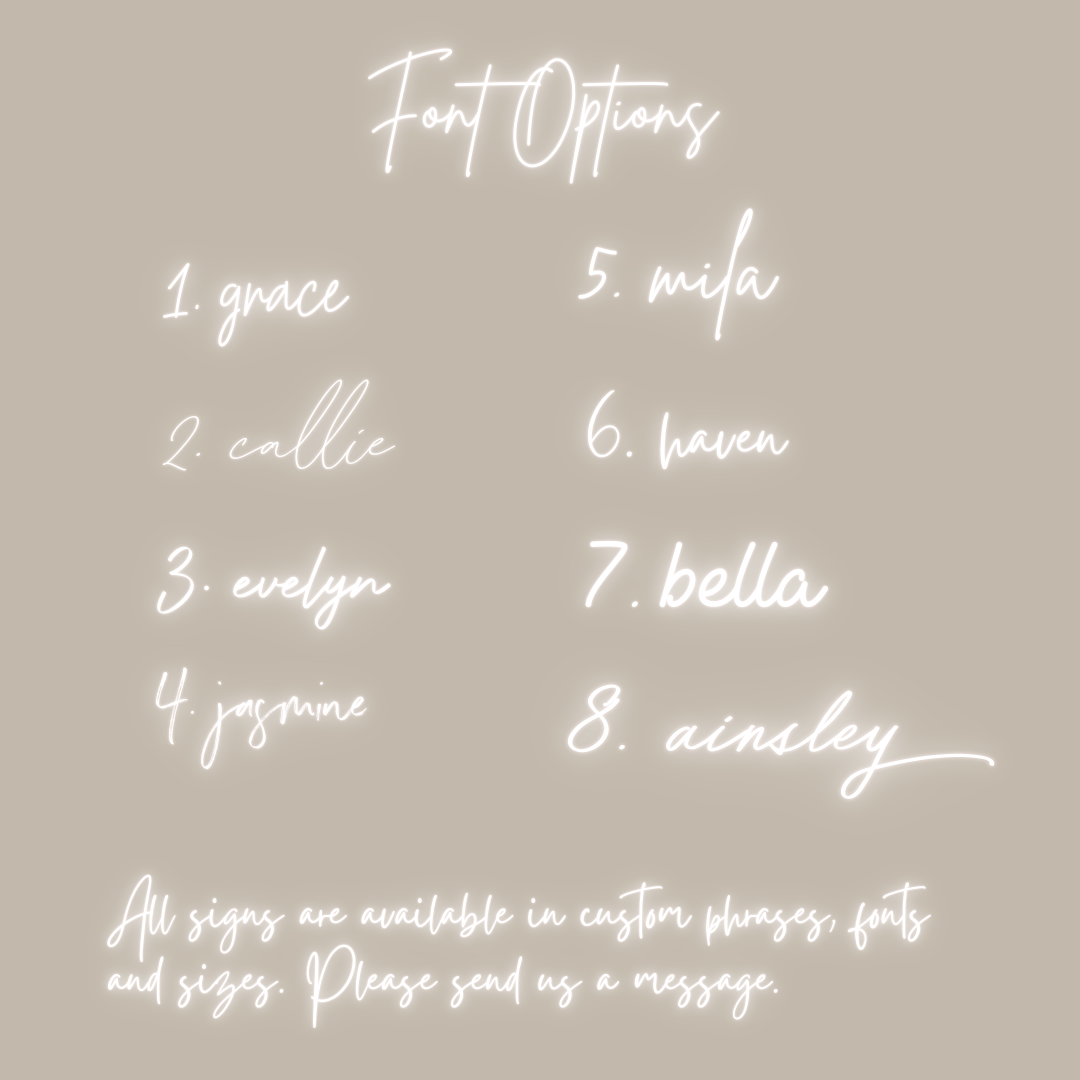 Font Options
1. grace
2. callie
3. evelyn
4. jasmine
5. mila
6. haven
7. bella
8. ainsley
All signs are available in custom phrases, fonts
and sizes. Please send us a message.